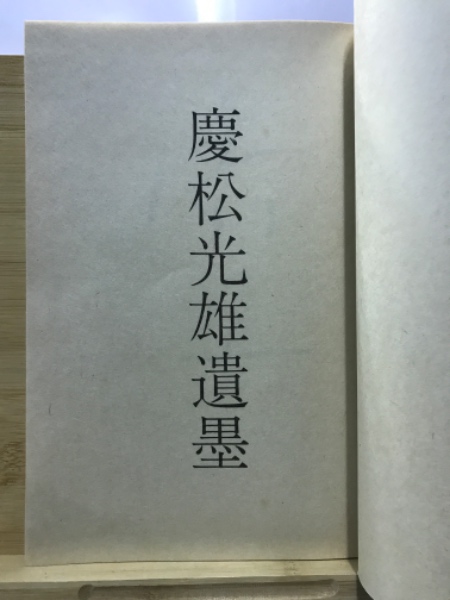 慶松光雄遺墨